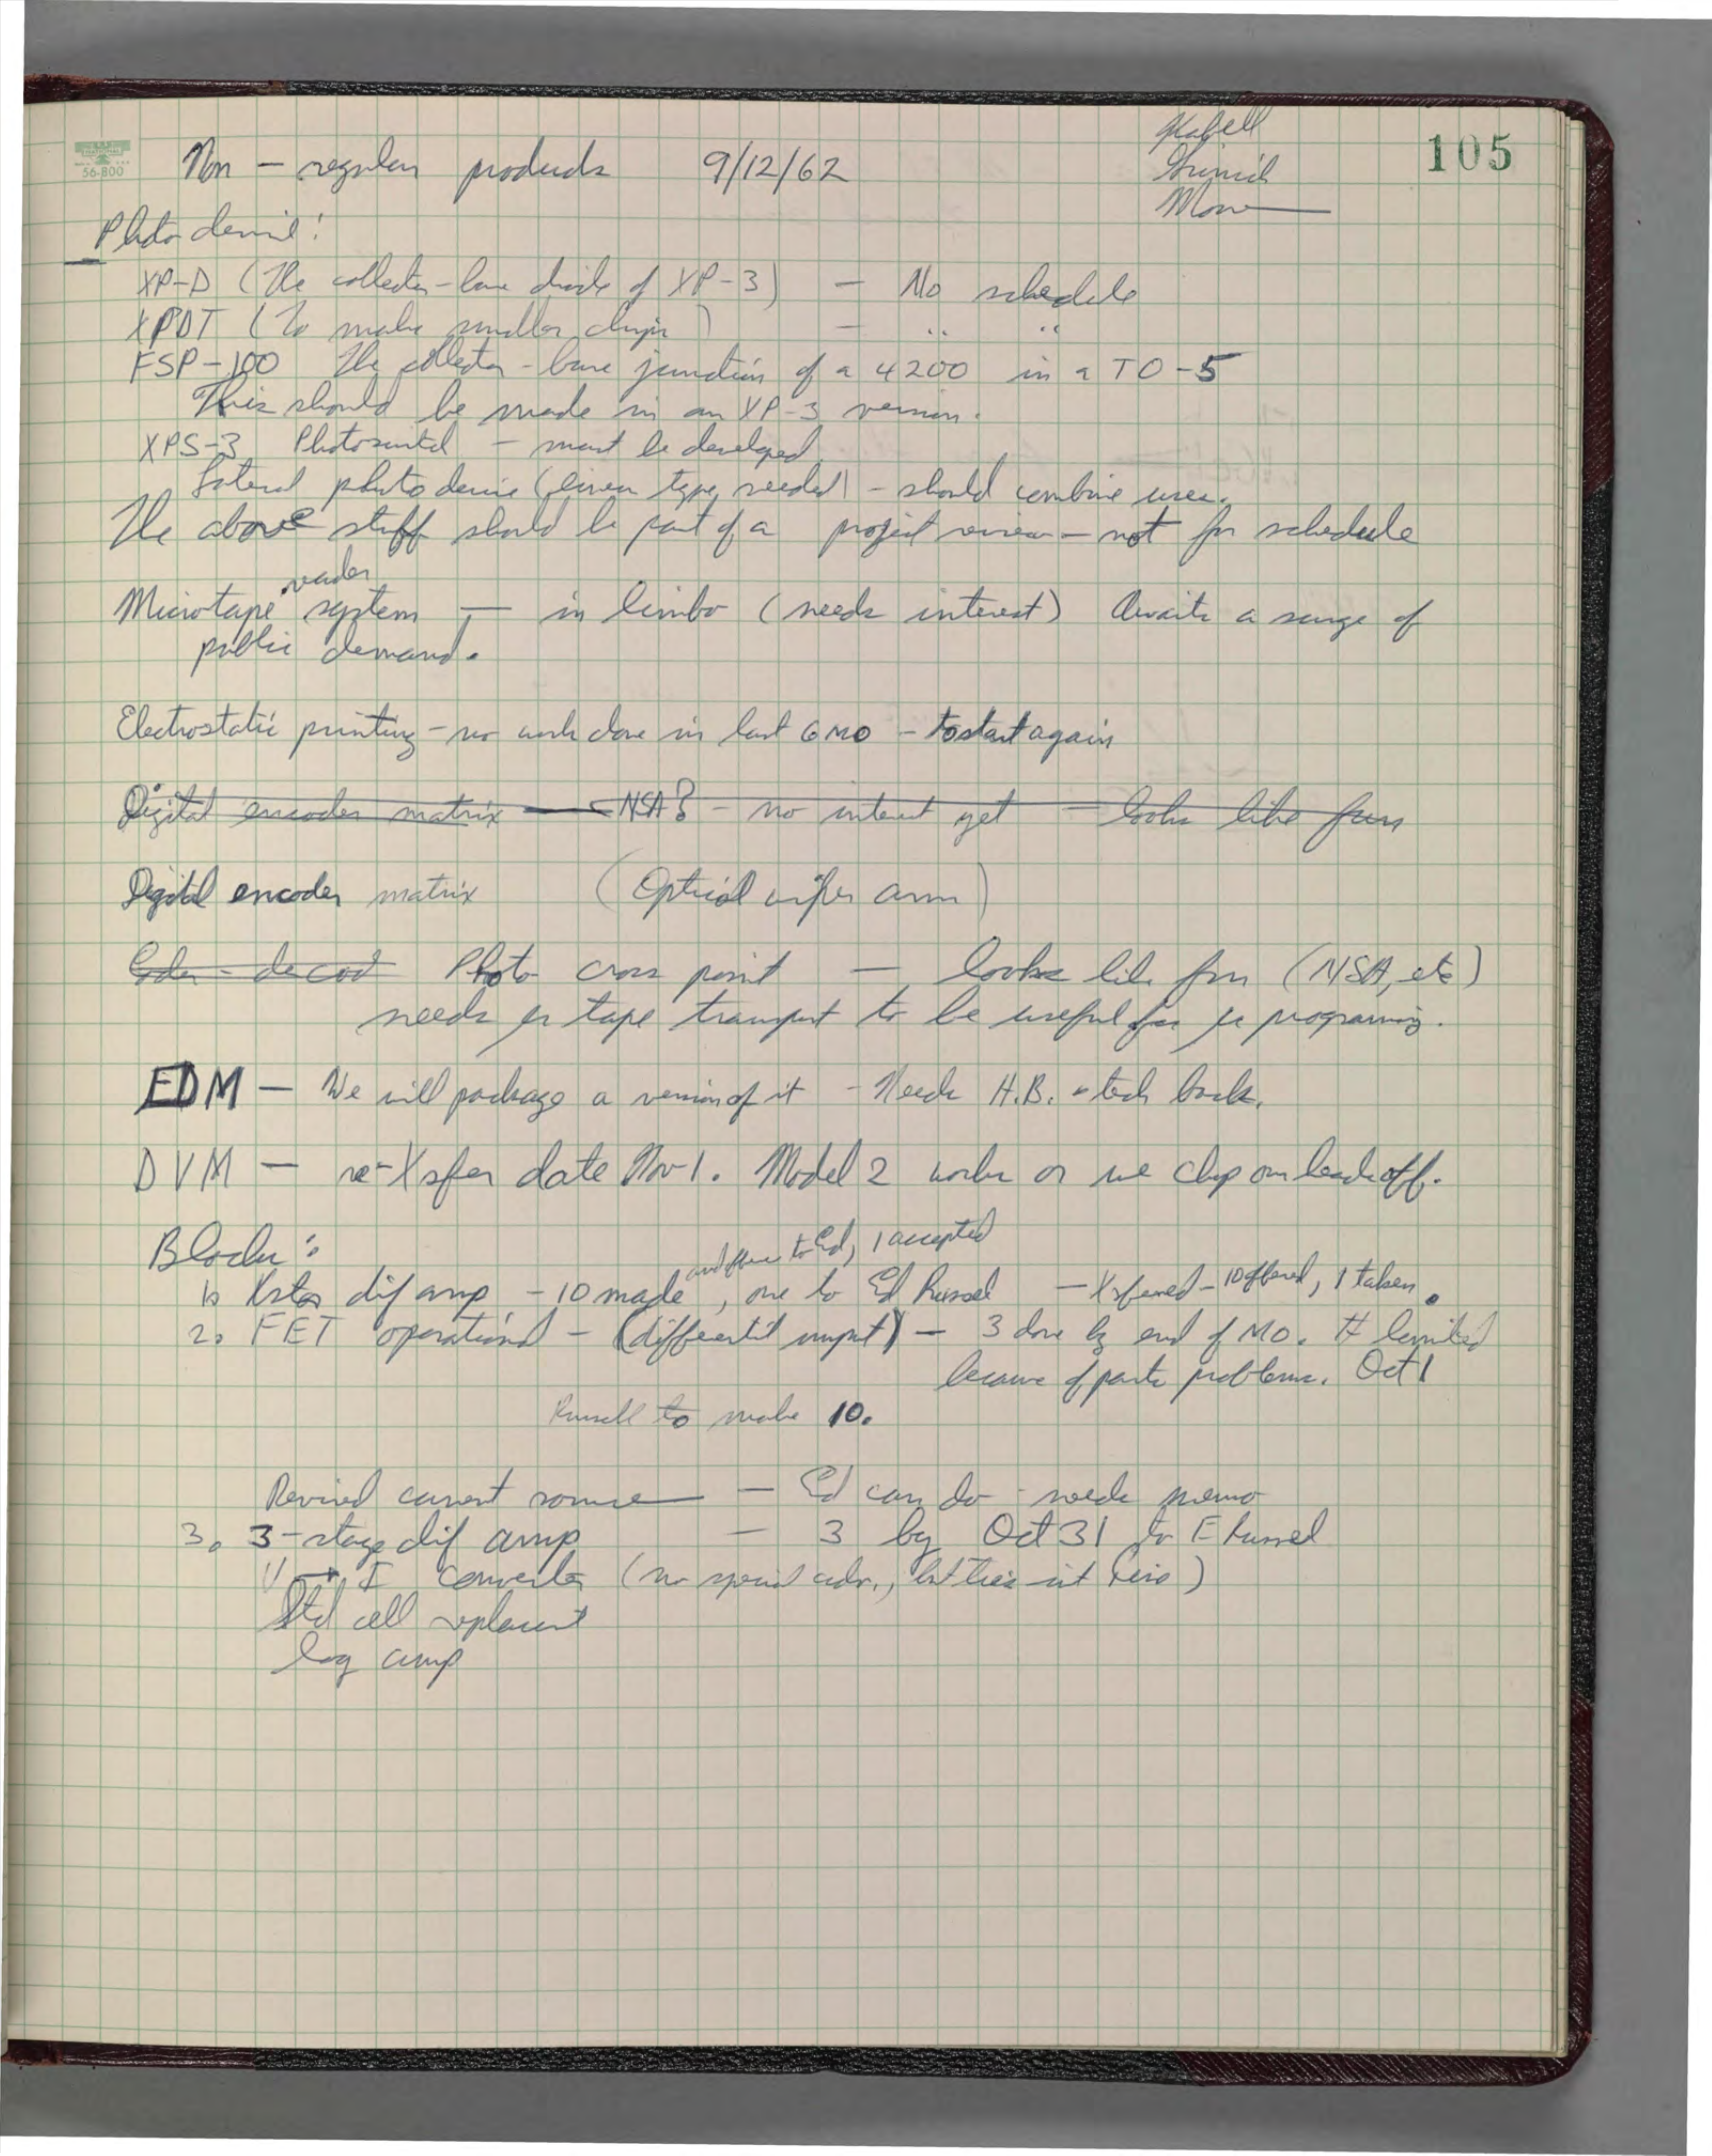 105
56-800
Non - regular products 9/12/62
Grinich
Moore
Photo device:
XP-D (The collector-base diode of XP-3) - No schedule
XPDT (To make smaller chips) - " "
FSP-100 The collector-base junction of a 4200 in a TO-5
This should be made in an XP-3 version.
XPS-3 Photoswitch - must be developed.
Lateral photo device (linear type, needed) - should combine uses.
The above stuff should be part of a project review - not for schedule
reader
Microtape system - in limbo (needs interest) Awaits a surge of
public demand.
Electrostatic printing - no work done in last 6 MO - to start again
Digital encoder matrix - NSA? - no interest yet - looks like fun
Digital encoder matrix (Optical wiper arm)
Coder - decod Photo cross point - looks like fun (NSA, etc)
needs tape transport to be useful for programing.
EDM - We will package a version of it - Needs H.B. tech
DVM - re-Xsfer date Nov 1. Model 2 works or we chop our heads off.
Blocks:
to Ed, 1 accepted
1. Xstor dif amp - 10 made, one to Ed Russel - Xsferred - 10 offered, 1 taken.
2. FET operational - (differentil input) - 3 done by end of MO. # limited
because of parts problems. Oct 1
Russell to make 10.
Revised current source - Ed can do - needs memo
3. 3-stage dif amp - 3 by Oct 31 to E Russel
V → I Converter (no special
Std cell replacent
log amp